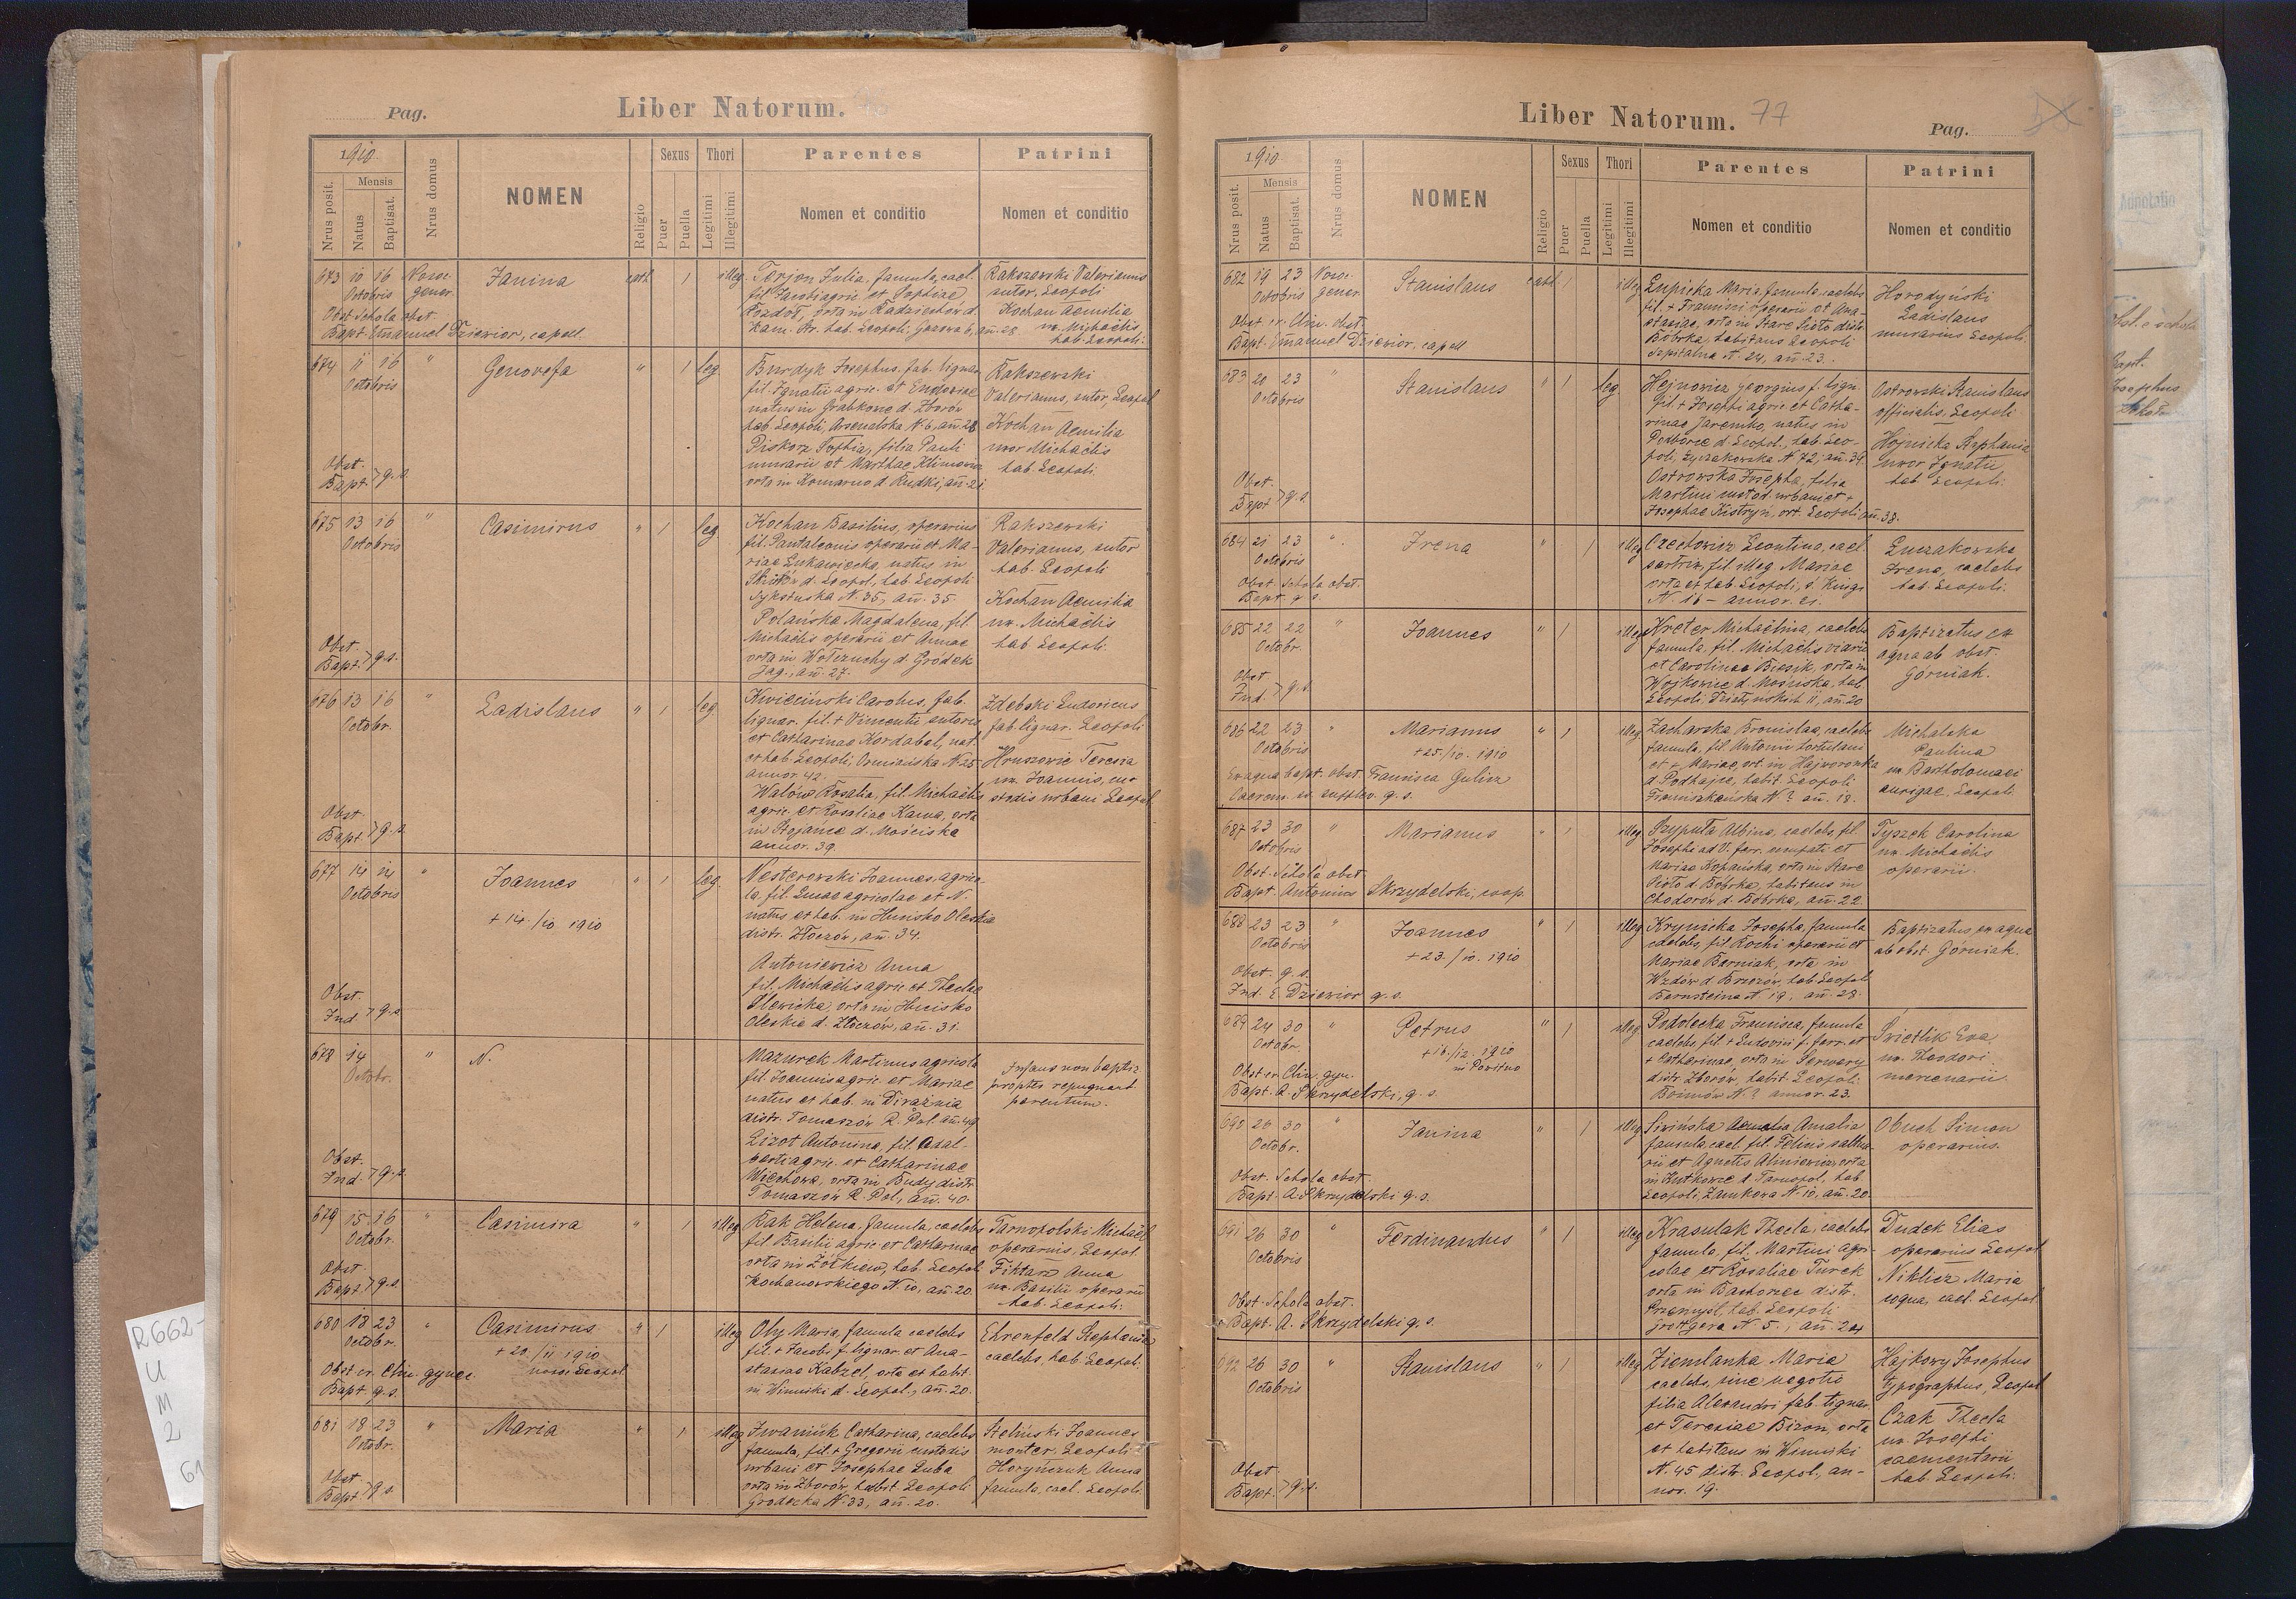 Pag.
Liber Natorum.
1910.
Nrus posit.
Mensis
Natus
Baptisat.
Nrus domus
NOMEN
Religio
Sexus
Puer
Puella
Thori
Legitimi
Illegitimi
Parentes
Nomen et conditio
Patrini
Nomen et conditio
673 10 16
Octobris
Janina
1
illeg
Obst. Schola obst.
Bapt. Emanuel Dziewior, capell.
Terjon Julia, famula, cael.
fil. Jacobi agric. et Sophiae
orta in Radziechów d.
Rakszewski Valerianus
sutor, Leopoli
Kochan Aemilia
ux. Michaëlis
hab. Leopoli.
674 11 16
Octobris
"
Genovefa
"
1
leg.
Obst.
Bapt. > q. s.
Burdyk Josephus, fab. lignar.
fil. Ignatii agric. et Eudoxiae
natus in Grabkowce d. Zborów
hab. Leopoli, Arsenalska N. 6, añ. 28
Piskorz Sophia, filia Pauli
murarii et Marthae Klimowicz
orta in Komarno d. Rudki, añ. 21.
Rakszewski
Valerianus, sutor, Leopol
Kochan Aemilia
uxor Michaëlis
hab. Leopoli.
675 13 16
Octobris
"
Casimirus
"
1
leg.
Obst.
Bapt. > q. s.
Kochan Basilius, operarius
fil. Pantaleonis operarii et Ma-
riae Lukawiecka, natus in
d. Leopol., hab. Leopoli
Sykstuska N. 35, añ. 35.
Polańska Magdalena, fil.
Michaëlis operarii et Annae
orta in Wołczuchy d. Gródek
Jag., añ. 27.
Rakszewski
Valerianus, sutor
hab. Leopoli
Kochan Aemilia
ux. Michaëlis
hab. Leopoli.
676 13 16
Octobr.
"
Ladislaus
"
1
leg.
Obst.
Bapt. > q. s.
Kwieciński Carolus, fab.
lignar. fil. + Vincentii sutoris
et Catharinae Kordabel, nat.
et hab. Leopoli, Ormiańska N. 25
annor. 42.
Walów Rosalia, fil. Michaëlis
agric. et Rosaliae Kawa, orta
in Stojance d. Mościska
annor. 39.
Zdebski Ludovicus
fab. lignar. Leopoli
Hruszowic Teresia
ux. Joannis, cu-
stodis urbani Leopol
677 14 14
Octobris
"
Joannes
+ 14./10 1910
"
1
leg.
Obst.
Ind. > q. s.
Nesterowski Joannes, agrico-
la, fil. Lucae agricolae et N.
natus et hab. in Hucisko Oleskie
distr. Złoczów, añ. 34.
Antoniewicz Anna
fil. Michaëlis agric. et Theclae
Ilewicka, orta in Hucisko
Oleskie d. Złoczów, añ. 31.
678 14
Octobr.
"
N.
Obst.
Ind. > q. s.
Mazurek Martinus agricola
fil. Joannis agric. et Mariae
natus et hab. in
distr. Tomaszów R. Pol. añ. 49
Lizot Antonina, fil. Adal-
berti agric. et Catharinae
orta in Budy distr.
Tomaszów R. Pol., añ. 40.
Infans non baptiz.
propter repugnant.
parentum.
679 15 16
Octobr.
"
Casimira
"
1
illeg
Obst.
Bapt. > q. s.
Rak Helena, famula, caelebs
fil. Basilii agric. et Catharinae
orta in Żółkiew, hab. Leopoli
Kochanowskiego N. 10, añ. 20.
Tarnopolski Michaël
operarius, Leopol.
Fiktarz Anna
ux. Basilii operarii
hab. Leopoli.
680 18 23
Octobr.
"
Casimirus
+ 20./11 1910
"
1
illeg
Obst. ex Clin. gynec.
Bapt. q. s.
Oly Maria, famula caelebs
fil. + Jacobi f. lignar. et Ana-
stasiae Kabzel, orta et habit.
in Winniki d. Leopol., añ. 20.
Ehrenfeld Stephania
caelebs, hab. Leopoli.
681 18 23
Octobr.
"
Maria
"
1
illeg
Obst.
Bapt. > q. s.
Iwaniuk Catharina, caelebs
famula, fil. + Gregorii custodis
urbani et Josephae Luba
orta in Zborów, habit. Leopoli
Grodecka N. 33, añ. 20.
Joannes
monter. Leopoli
Horyńczuk Anna
famula, cael. Leopoli.
Liber Natorum. 77
Pag.
1910.
Nrus posit.
Mensis
Natus
Baptisat.
Nrus domus
NOMEN
Religio
Sexus
Puer
Puella
Thori
Legitimi
Illegitimi
Parentes
Nomen et conditio
Patrini
Nomen et conditio
682 19 23
Octobris
Stanislaus
1
illeg
Obst. ex Clin. obst.
Bapt. Emanuel Dziewior, capell
Łupicka Maria, famula, caelebs
fil. + Francisci operarii et Ana-
stasiae, orta in Stare Sioło distr.
Bóbrka, habitans Leopoli
Szpitalna N. 24, añ. 23.
Horodyński
Ladislaus
murarius Leopoli.
683 20 23
Octobris
"
Stanislaus
"
1
leg
Obst.
Bapt. > q. s.
Hejnowicz Georgius f. lign.
fil. + Josephi agric. et Catha-
rinae Jaremko, natus in
Podborce d. Leopol., hab. Leo-
poli, Łyczakowska N. 72, añ. 39.
Ostrowska Josepha, filia
Martini custod. urbani et +
Josephae Kistryn, ort. Leopoli añ. 38.
Ostrowski Stanislaus
officialis, Leopoli
Hojnicka Stephania
uxor Ignatii
hab. Leopoli.
684 21 23
Octobris
"
Irena
"
1
illeg
Obst. Schola obst.
Bapt. q. s.
Czechowicz Leontina, cael.
sartrix, fil. illeg. Mariae
orta et hab. Leopoli, S. Kingi
N. 16 - annor. 21.
Łuczakowska
Irena, caelebs
hab. Leopoli.
685 22 22
Octobr.
"
Joannes
"
1
illeg
Obst.
Ind. > q. s.
Kreter Michaëlina, caelebs
famula, fil. Michaëlis viarii
et Carolinae Biesik, orta in
Wojkowice d. Mościska, hab.
Leopoli, 11, añ. 20
Baptizatus ex
aqua ab obst.
Górniak.
686 22 23
Octobris
"
Marianus
+ 25./10. 1910
"
1
illeg
Ex aqua bapt. obst. Francisca Gulicz
Caerem. ex. supplev. q. s.
Zacharska Bronislaa, caelebs
famula, fil. Antonii hortulani
et + Mariae, ort. in Hajworonka
d. Podhajce, habit. Leopoli
Franciszkańska N. ? añ. 18.
Michalska
Paulina
ux. Bartholomaei
aurigae, Leopoli.
687 23 30
Octobris
"
Marianus
"
1
illeg
Obst. Schola obst.
Bapt. Antonius Skrzydelski, coop.
Szyputa Albina, caelebs, fil.
Josephi ad V. ferr. occupati et
Mariae Kopańska, orta in Stare
Sioło d. Bóbrka, habitans in
Chodorów d. Bóbrka, añ. 22.
Tyszek Carolina
ux. Michaëlis
operarii.
688 23 23
Octobris
"
Joannes
+ 23./10. 1910
"
1
illeg
Obst. q. s.
Ind. E. Dziewior q. s.
Krynicka Josepha, famula
caelebs, fil. Rochi operarii et
Mariae Barniak, orta in
Wzdów d. Brzozów, hab. Leopoli
Bernsteina N. 19, añ. 28.
Baptizatus ex aqua
ab obst. Górniak.
689 24 30
Octobr.
"
Petrus
+ 16./12. 1910
"
1
illeg
Obst. ex Clin. gyn.
Bapt. A. Skrzydelski, q. s.
Podolecka Francisca, famula
caelebs, fil. + Ludovici f. ferr. et
+ Catharinae, orta in Serwery
distr. Zborów, habit. Leopoli
Boimów N. ? annor. 23.
Świetlik Eva
ux. Theodori
mercenarii.
690 26 30
Octobr.
"
Janina
"
1
illeg
Obst. Schola obst.
Bapt. A. Skrzydelski q. s.
Amalia
famula, cael. fil. Felicis saltua-
rii et Agnetis Aliniewicz, orta
in Kutkowce d. Tarnopol, hab.
Leopoli, Zamkowa N. 10, añ. 20
Obuch Simon
operarius.
691 26 30
Octobris
"
Ferdinandus
"
1
illeg
Obst. Schola obst.
Bapt. A. Skrzydelski q. s.
Krasulak Thecla, caelebs
famula, fil. Martini agri-
colae et Rosaliae Turek
orta in Bachorzec distr.
Przemyśl, hab. Leopoli
Grottgera N. 5., añ. 24
Dudek Elias
operarius Leopol
Niklicz Maria
coqua, cael. Leopol.
692 26 30
Octobris
"
Stanislaus
"
1
illeg
Obst.
Bapt. > q. s.
Ziemlanka Maria
caelebs, sine negotio
filia Alexandri fab. lignar.
et Teresiae Bizon, orta
et habitans in Winniki
N. 45 distr. Leopol., an-
nor. 19.
Hajkowy Josephus
typographus, Leopol
Czak Thecla
ux. Josephi
caementarii
hab. Leopoli.
R662-
U
M
2
Annotatio